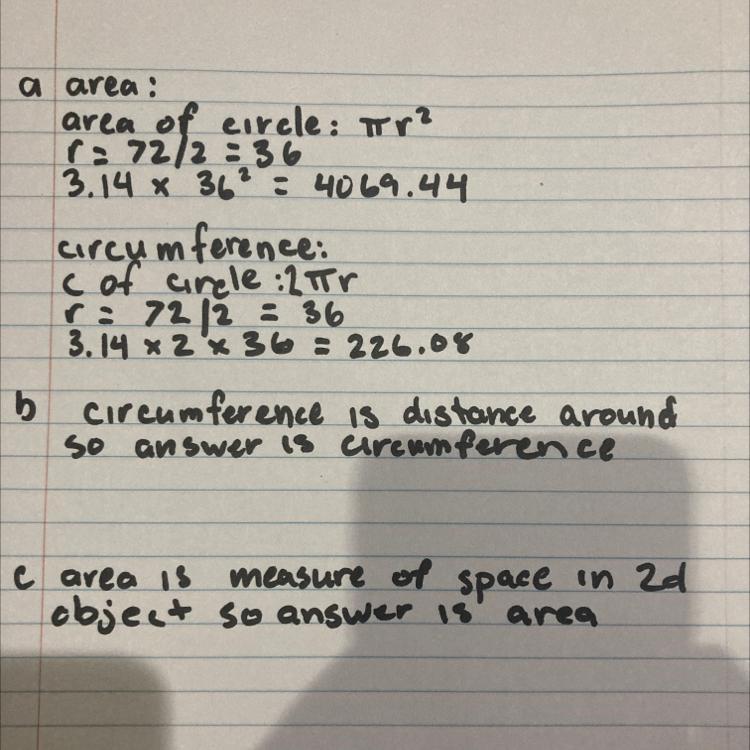 a area:
area of circle: πr²
r = 72/2 = 36
3.14 x 36² = 4069.44
circumference:
c of circle: 2πr
r = 72/2 = 36
3.14 x 2 x 36 = 226.08
b circumference is distance around
so answer is circumference
c area is measure of space in 2d
object so answer is area